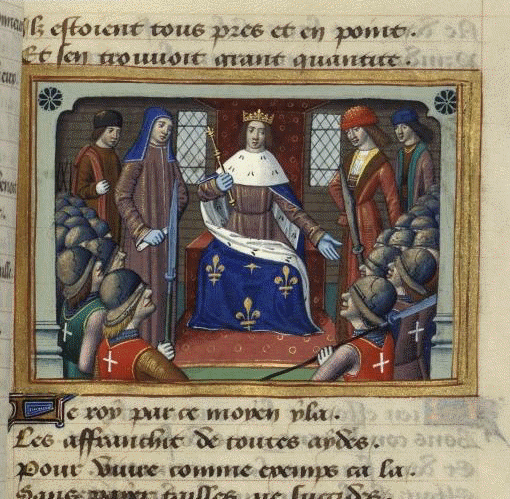 Ilz estoient tous pres et en point.
Et sen trouuoit grant quantite.
Le roy par ce moyen yla
Les affranchit de toutes aydes.
Pour viure comme exemps ca la.
Sans tailles ne